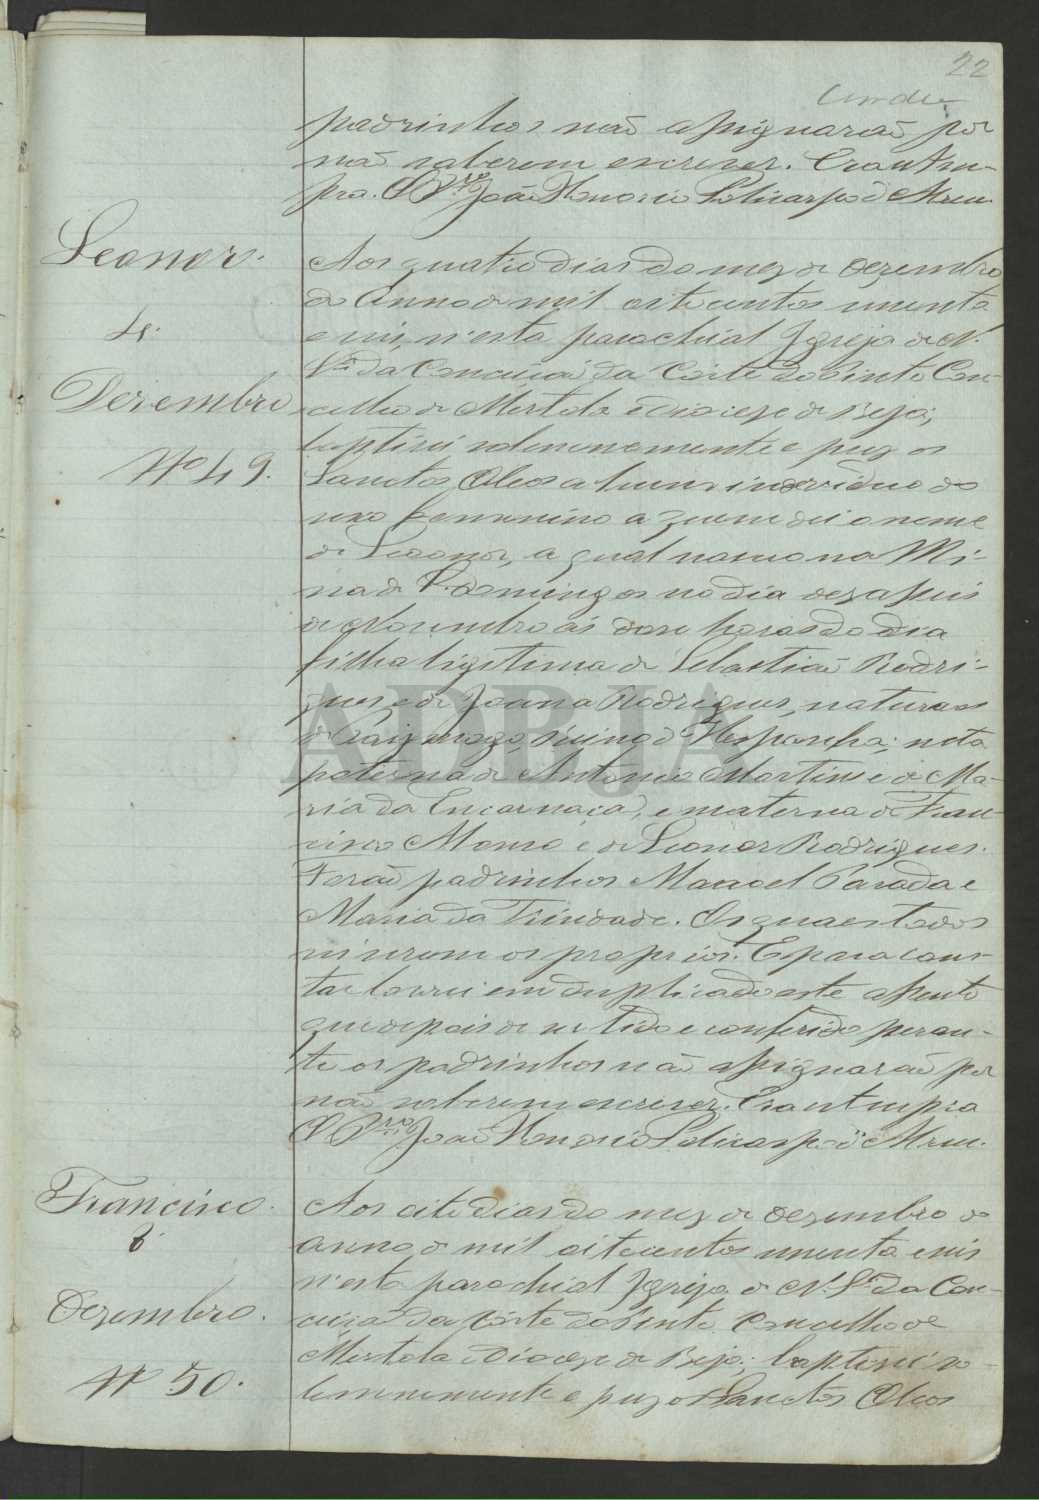 22
padrinhos não assignarão por
não saberem escrever. Era ut su-
pra. O Pr.º João Honorio Policarpo d'
Leonor.
4.
Dezembro
Nº 49.
Aos quatro dias do mez de Dezembro
do Anno de mil oito centos secenta
e seis, n'esta parochial Igreja de N.
Sr.ª da Conceição da Corte do Pinto Con-
celho de Mertola e Diocese de Beja;
baptisei solemnemente e puz os
Sanctos Oleos a hum individuo do
sexo femenino a quem dei o nome
de Leonor, a qual nasceo na Mi-
na de S. Domingos no dia dezasseis
de Novembro ás doze horas do dia
filha ligitima de Sebastião Rodri-
gues, e de Joana Rodrigues, naturaes
de Reino de Hespanha; neta
paterna de Antonio Martins e de Ma-
ria da Encarnação, e materna de Fran-
cisco e de Leonor Rodrigues.
Forão padrinhos Manoel Parada e
Maria da Trindade. Os quaes todos
sei serem os proprios. E para cons-
tar lavrei em duplicado este assento
que depois de ser lido e conferido peran-
te os padrinhos não assignarão por
não saberem escrever. Era ut supra
O Pr.º João Honorio Policarpo d'
Francisco.
8.
Dezembro.
Nº 50.
Aos oito dias do mez de Dezembro do
anno de mil oito centos secenta e seis
n'esta parochial Igreja de N. Sr.ª da Con-
ceição da Corte do Pinto Concelho de
Mertola e Diocese de Beja; baptisei so-
lemnemente e puz os Sanctos Oleos
ADBJA